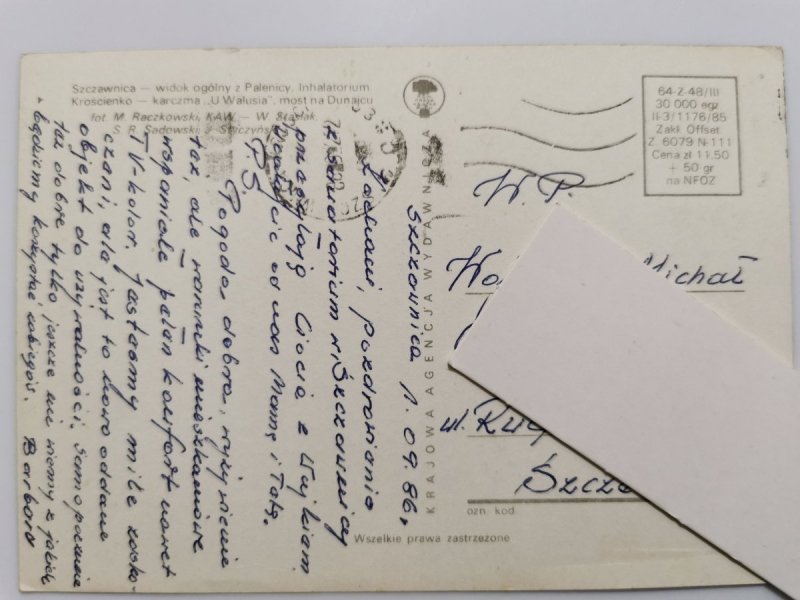 Szczawnica — widok ogólny z Palenicy, Inhalatorium
Krościenko — karczma „U Walusia", most na Dunajcu
fot. M. Raczkowski, KAW — W. Stasiak,
S. R. Sadowski, J. Siudyński
64-Z-48/III
30 000 egz
II-3/1176/85
Zakł. Offset.
Z. 6079 N-111
Cena zł 11,50
+ 50 gr
na NFOZ
KRAJOWA AGENCJA WYDAWNICZA
Szczawnica 1.09.86r
Ładniami, pozdrowienia
z sanatorium w Szczawnicy
przesyłają Ciocia z Wujkiem
ucałujcie od nas Mamę i Tatę.
P.S.
Pogoda dobra, wyżywienie
też, ale warunki mieszkaniowe
wspaniałe pełen komfort nawet
TV-kolor. Jesteśmy mile zasko-
czeni, ale jest to nowo oddany
objekt do używalności. Samopoczucie
też dobre tylko jeszcze nie wiemy z jakich
będziemy korzystać zabiegów. Barbara
W. P.
Michał
ul.
Szcze
ozn. kod
Wszelkie prawa zastrzeżone